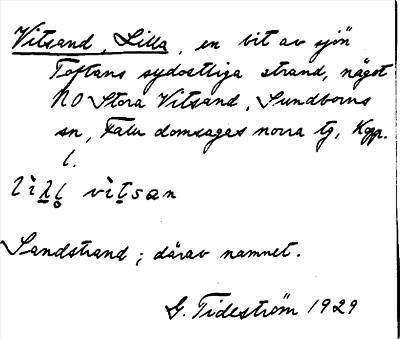 Vitsand, Lilla, en bit av sjön
Toftans sydostliga strand, något
NO Stora Vitsand, Sundborns
sn, Falu domsagas norra tg, Kopp.
l.
vìtsan
Sandstrand; därav namnet.
G. Tideström 1929